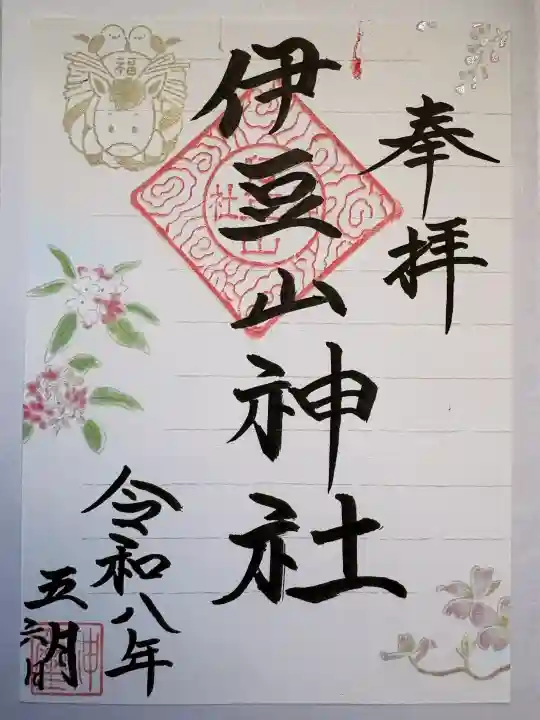 奉拝
伊豆山神社
令和八年
五月
福
社